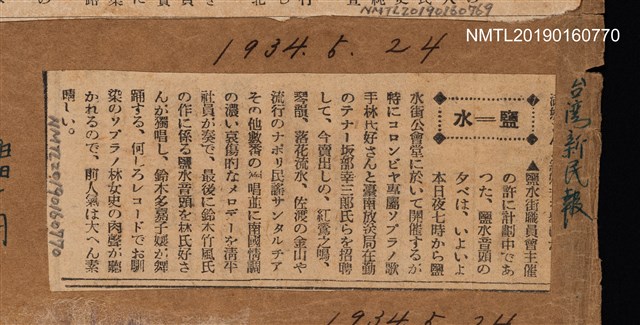 NMTL20190160769
1934.5.24
NMTL20190160770
台湾新民報
鹽＝水
▲鹽水街職員會主催
の許に計劃中であ
つた、鹽水音頭の
夕べは、いよいよ
本日夜七時から鹽
水街公會堂に於いて開催するが
特にコロンビヤ專屬ソプラノ歌
手林氏好さんと臺南放送局在勤
のテナー坂部幸三郎氏らを招聘
して、今賣出しの、紅鶯之鳴、
琴韻、落花流水、佐渡の金山や
流行のナポリ民謠サンタルチア
その他數番の獨唱並に南國情調
の濃い哀傷的なメロデーを淸牛
社員が奏で、最後に鈴木竹風氏
の作に係る鹽水音頭を林氏好さ
んが獨唱し、鈴木多嘉子孃が舞
踊する、何しろレコードでお馴
染のソプラノ林女史の肉聲が聽
かれるので、前人氣は大へん素
晴しい。
NMTL20190160770
1934.5.24